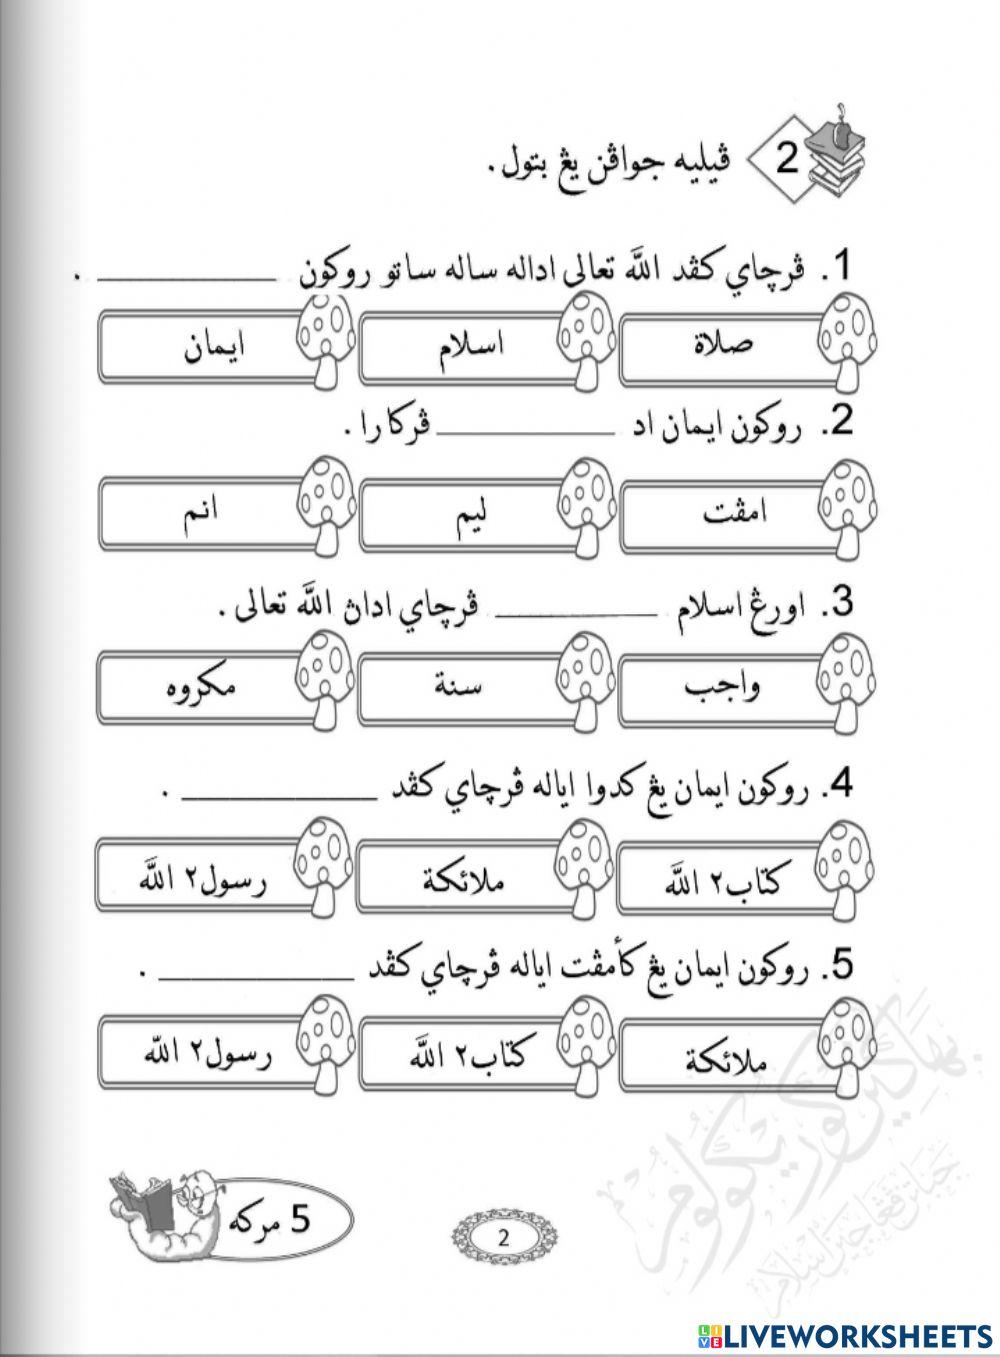 2 ڤيليه جواڤن يڠ بتول.
1. ڤرچاي كڤد اللّٰه تعالى اداله ساله ساتو روكون ____________ .
صلاة اسلام ايمان
2. روكون ايمان اد ____________ ڤركارا .
امڤت ليم انم
3. اورڠ اسلام ____________ ڤرچاي اداڽ اللّٰه تعالى .
واجب سنة مكروه
4. روكون ايمان يڠ كدوا اياله ڤرچاي كڤد ____________ .
كتاب٢ اللّٰه ملائكة رسول٢ اللّٰه
5. روكون ايمان يڠ كأمڤت اياله ڤرچاي كڤد ____________ .
ملائكة كتاب٢ اللّٰه رسول٢ اللّٰه
5 مركه
2
LIVEWORKSHEETS